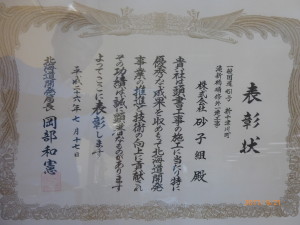 表彰状
一般国道275号 新十津川町
株式会社 砂子組 殿
貴社は頭書工事の施工に当たり特に
優秀なる成果を収めもって北海道開発
事業の推進と技術の向上に貢献され
その功績は誠に顕著なものがあります
よってここに表彰します
平成二十六年 七月十七日
北海道開発局長 岡部和憲